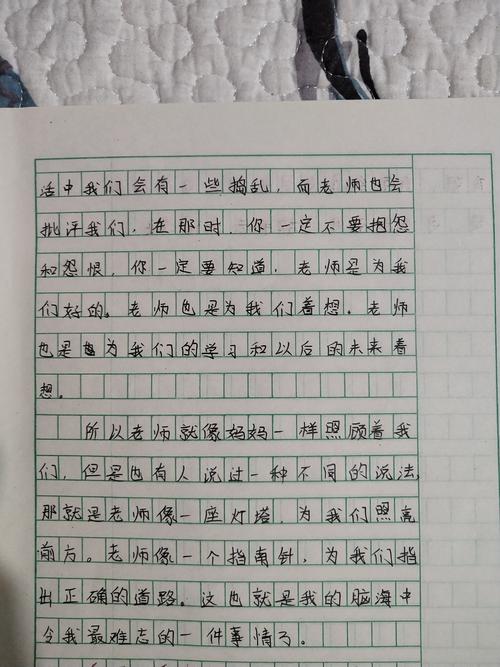 活中我们会有一些捣乱,而老师也会
批评我们,在那时,你一定不要抱怨
和怨恨,你一定要知道,老师是为我
们好的。老师也是为我们着想。老师
也是也为我们的学习和以后的未来着
想。
所以老师就像妈妈一样照顾着我
们,但是也有人说过一种不同的说法,
那就是老师像一座灯塔,为我们照亮
前方。老师像一个指南针,为我们指
出正确的道路。这也就是我的脑海中
令我最难志的一件事情了。